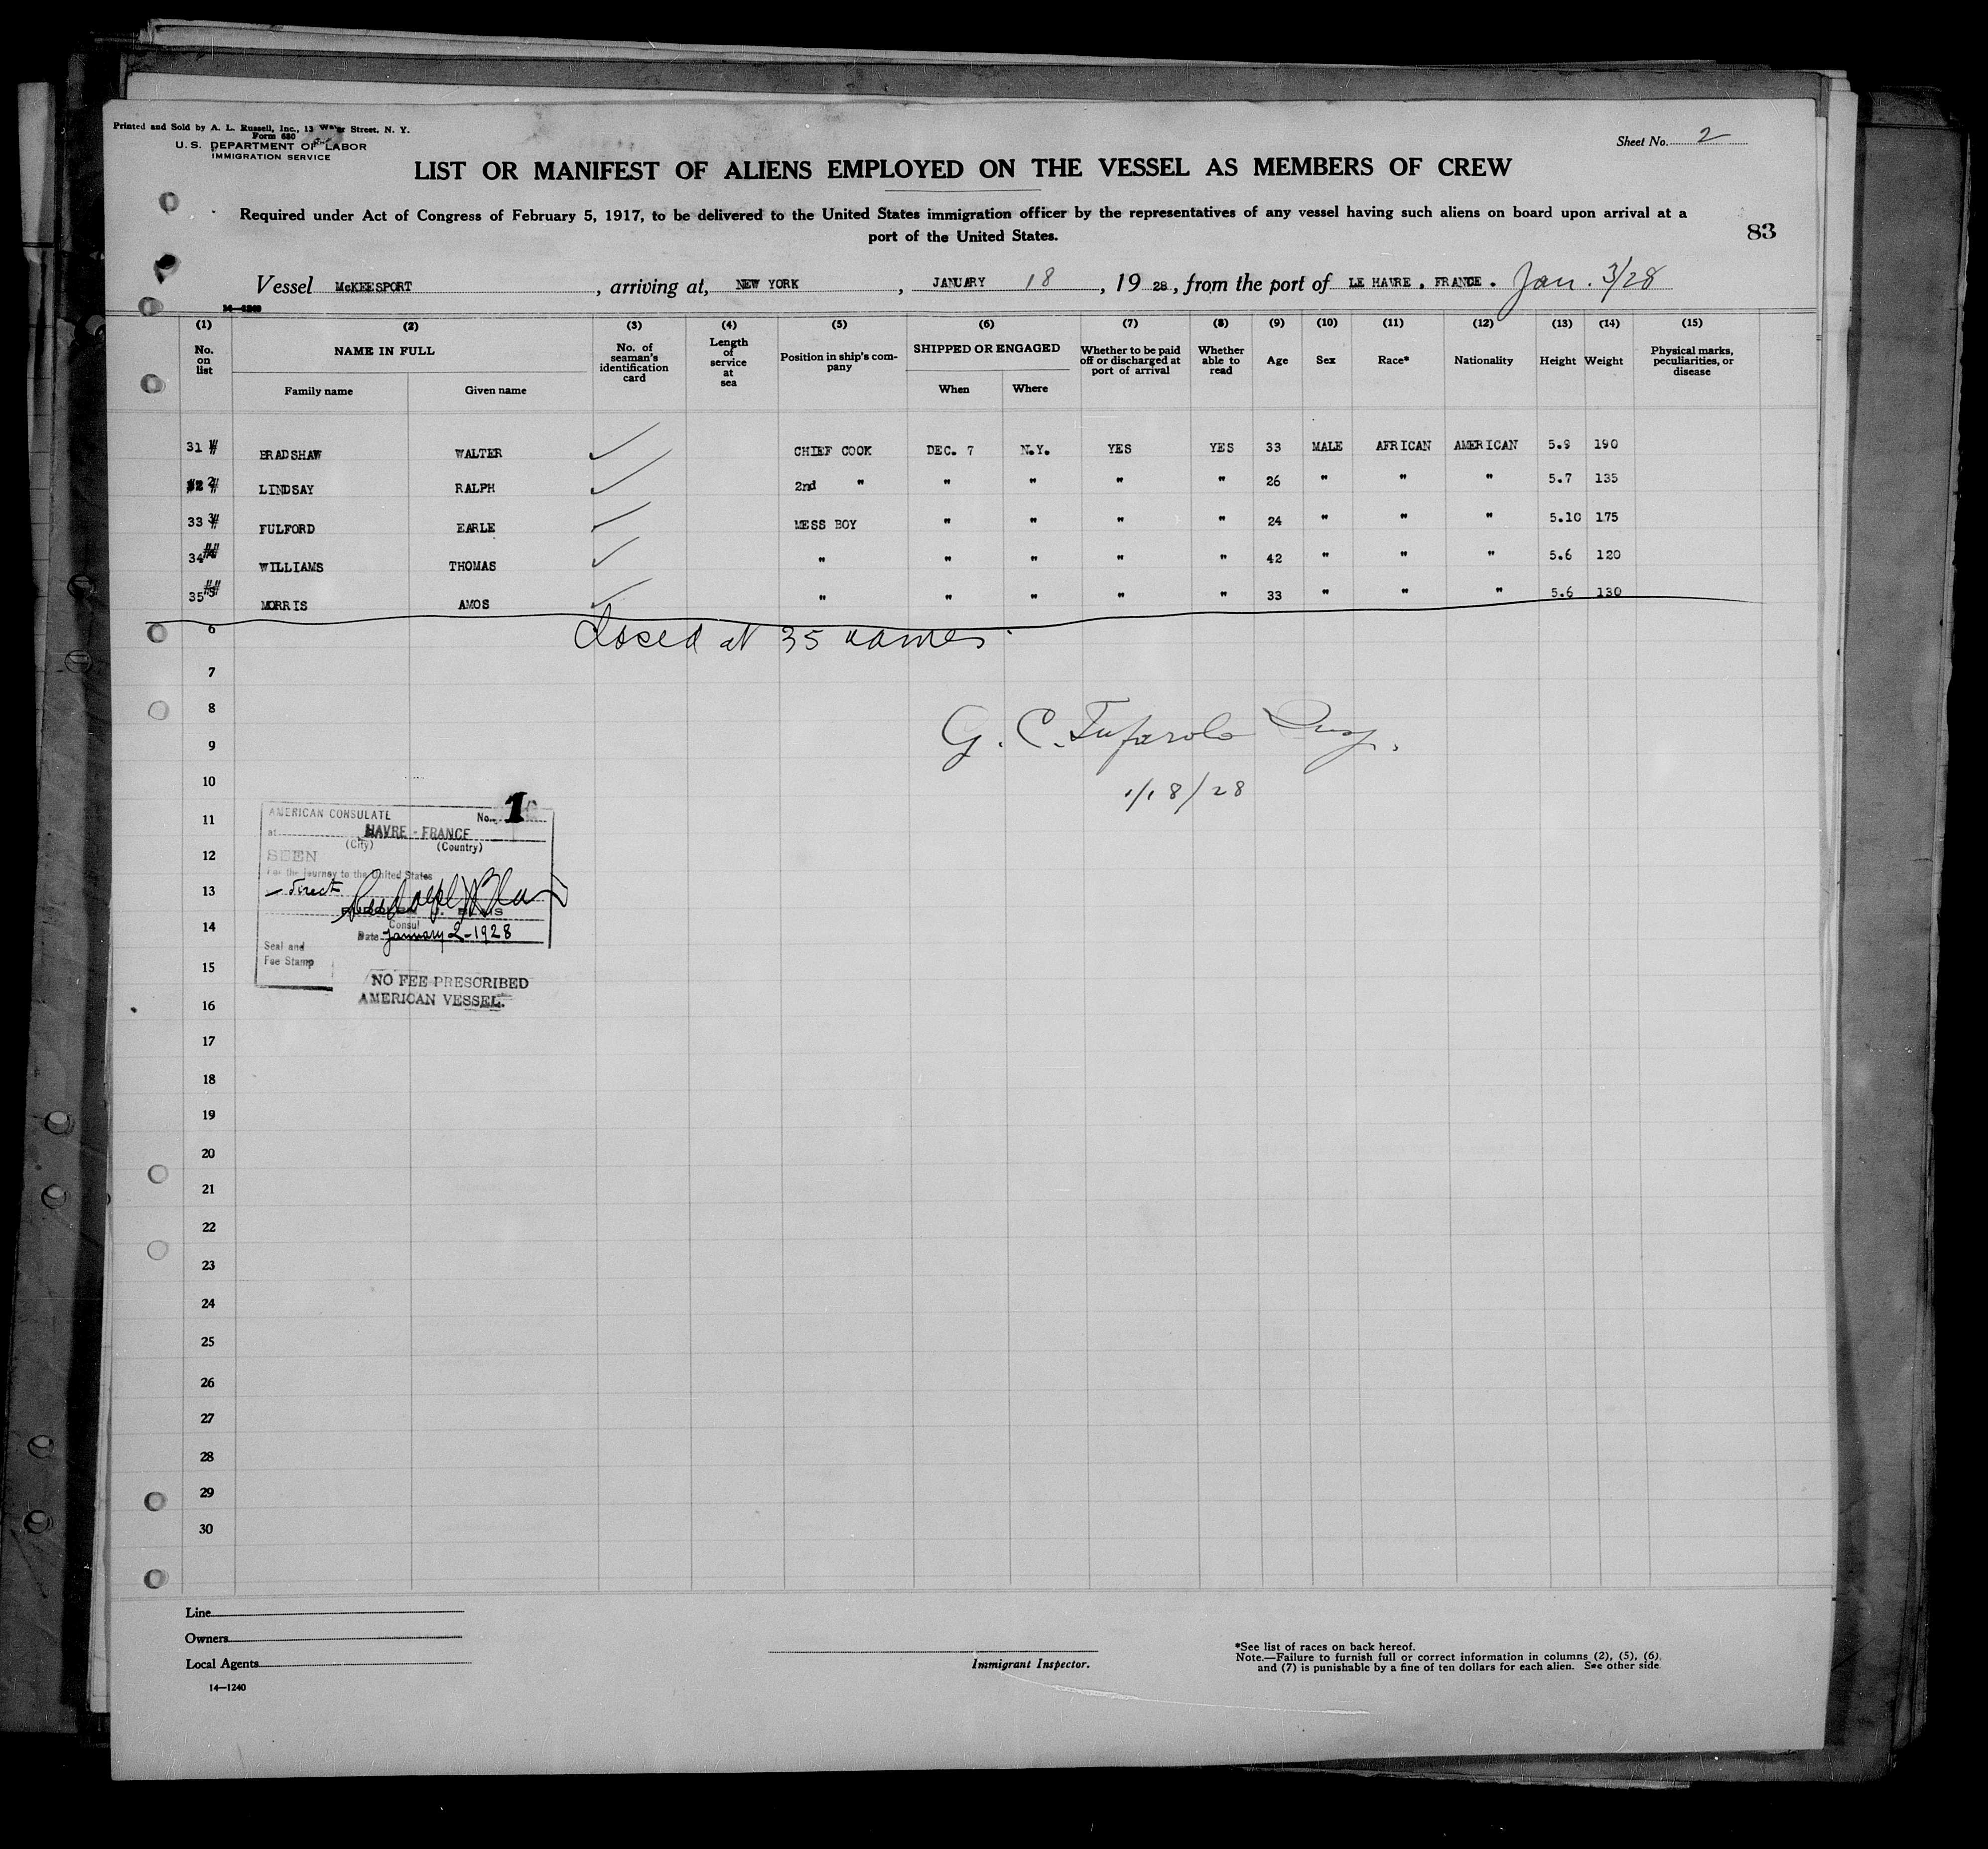 Printed and Sold by A. L. Russell, Inc., 13 Water Street, N. Y.
Form 680
U. S. DEPARTMENT OF LABOR
IMMIGRATION SERVICE
Sheet No. 2
LIST OR MANIFEST OF ALIENS EMPLOYED ON THE VESSEL AS MEMBERS OF CREW
Required under Act of Congress of February 5, 1917, to be delivered to the United States immigration officer by the representatives of any vessel having such aliens on board upon arrival at a
port of the United States.
83
Vessel McKEESPORT, arriving at, NEW YORK, JANUARY 18, 19 28, from the port of LE HAVRE, FRANCE. Jan. 3/28
14—1240
(1) (2) (3) (4) (5) (6) (7) (8) (9) (10) (11) (12) (13) (14) (15)
No. on list NAME IN FULL Family name Given name No. of seaman's identification card Length of service at sea Position in ship's company SHIPPED OR ENGAGED When Where Whether to be paid off or discharged at port of arrival Whether able to read Age Sex Race* Nationality Height Weight Physical marks, peculiarities, or disease
31 BRADSHAW WALTER CHIEF COOK DEC. 7 N.Y. YES YES 33 MALE AFRICAN AMERICAN 5.9 190
32 LINDSAY RALPH 2nd " " " " " 26 " " " 5.7 135
33 FULFORD EARLE MESS BOY " " " " 24 " " " 5.10 175
34 WILLIAMS THOMAS " " " " " 42 " " " 5.6 120
35 MORRIS AMOS " " " " " 33 " " " 5.6 130
6
Closed at 35 names.
7
8
G. C. Tufarolo Insp.
9
10
1/18/28
11
AMERICAN CONSULATE No. 1
at HAVRE - FRANCE
(City) (Country)
12
SEEN
For the journey to the United States
13
direct
RUDOLPH J. BLAIS
Consul
14
Date January 2 - 1928
Seal and
Fee Stamp
15
NO FEE PRESCRIBED
AMERICAN VESSEL.
16
17
18
19
20
21
22
23
24
25
26
27
28
29
30
Line
Owners
Local Agents
14—1240
Immigrant Inspector.
*See list of races on back hereof.
Note.—Failure to furnish full or correct information in columns (2), (5), (6),
and (7) is punishable by a fine of ten dollars for each alien. See other side